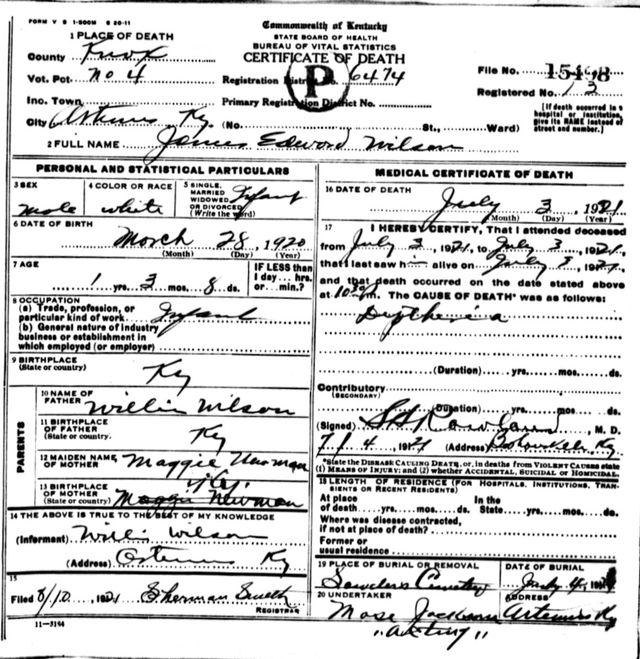 FORM V S 1-500M 6 20-11
Commonwealth of Kentucky
STATE BOARD OF HEALTH
BUREAU OF VITAL STATISTICS
CERTIFICATE OF DEATH
1 PLACE OF DEATH
County Knox
Vot. Pct. No 4
Registration District No. 6474
P
File No. 15498
Registered No. 13
Inc. Town
Primary Registration District No.
City Artemus Ky. (No. St., Ward)
[If death occurred in a
hospital or institution,
give its NAME instead of
street and number.]
2 FULL NAME James Edword Wilson
PERSONAL AND STATISTICAL PARTICULARS
3 SEX
male
4 COLOR OR RACE
white
5 SINGLE,
MARRIED
WIDOWED
OR DIVORCED
(Write the word)
Infant
6 DATE OF BIRTH
March 28, 1920
(Month) (Day) (Year)
7 AGE
1 yrs. 3 mos. 8 ds.
IF LESS than
1 day... hrs.
or... min.?
8 OCCUPATION
(a) Trade, profession, or
particular kind of work Infant
(b) General nature of industry
business or establishment in
which employed (or employer)
9 BIRTHPLACE
(State or country)
Ky
PARENTS
10 NAME OF
FATHER Willis Wilson
11 BIRTHPLACE
OF FATHER
(State or country.
Ky
12 MAIDEN NAME
OF MOTHER Maggie Newman
13 BIRTHPLACE
OF MOTHER
(State or country
Ky.
Maggie Newman
14 THE ABOVE IS TRUE TO THE BEST OF MY KNOWLEDGE
(Informant) Willis Wilson
(Address) Artemus Ky
15
Filed 8/10, 1921 Sherman Smith
REGISTRAR
11-3144
MEDICAL CERTIFICATE OF DEATH
16 DATE OF DEATH
July 3 1921
(Month) (Day) (Year)
17 I HEREBY CERTIFY, That I attended deceased
from July 3, 1921, to July 3, 1921,
that I last saw him alive on July 3, 1921,
and that death occurred on the date stated above
at m. The CAUSE OF DEATH* was as follows:
Diptheria
(Duration) yrs. mos. ds.
Contributory
(SECONDARY)
(Duration) yrs. mos. ds.
(Signed) M. D.
7/4, 1921 (Address) Ky.
*State the DISEASE CAUSING DEATH, or, in deaths from VIOLENT CAUSES state
(1) MEANS OF INJURY; and (2) whether ACCIDENTAL, SUICIDAL or HOMICIDAL.
18 LENGTH OF RESIDENCE (FOR HOSPITALS, INSTITUTIONS, TRAN-
SIENTS OR RECENT RESIDENTS)
At place
of death yrs. mos. ds.
In the
State yrs. mos. ds.
Where was disease contracted,
if not at place of death?
Former or
usual residence
19 PLACE OF BURIAL OR REMOVAL
Sanders Cemetery
DATE OF BURIAL
July 4, 1921
20 UNDERTAKER
Mose Jackson
ADDRESS
Artemus Ky
"acting"